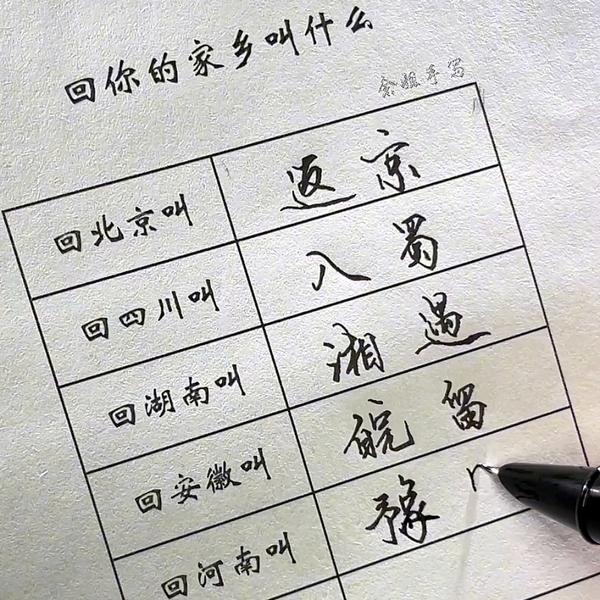 回你的家乡叫什么
回北京叫 返京
回四川叫 入蜀
回湖南叫 湘遇
回安徽叫 皖留
回河南叫 豫